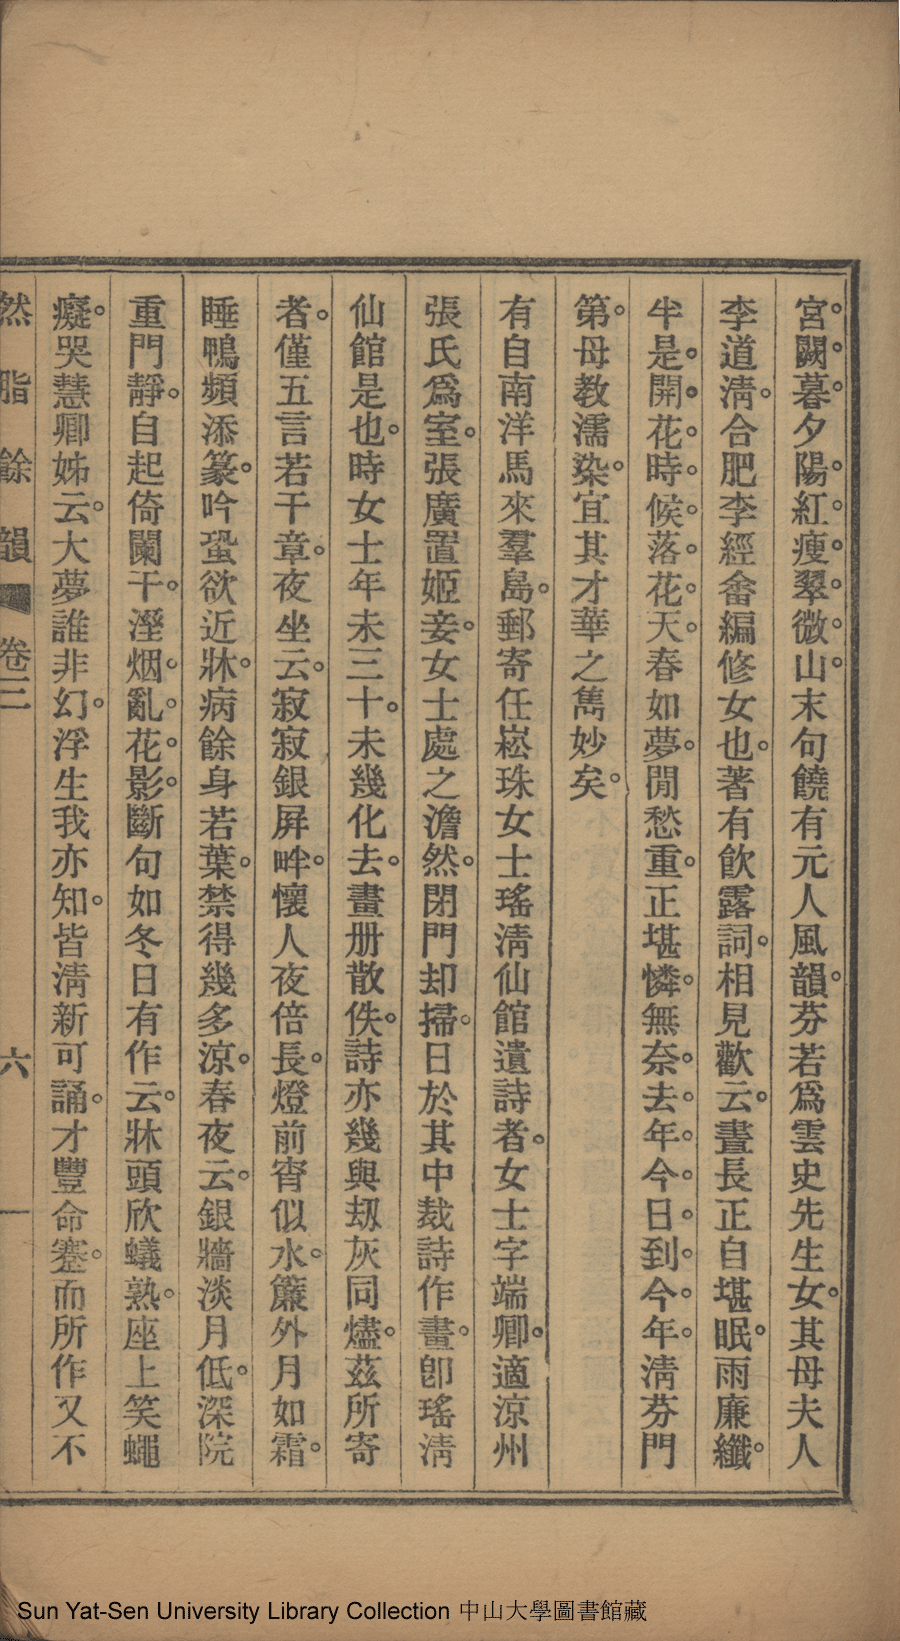 宮闕暮夕陽紅瘦翠微山末句饒有元人風韻芬若爲雲史先生女其母夫人
李道淸合肥李經畬編修女也著有飮露詞相見歡云晝長正自堪眠雨廉纖
半是開花時候落花天春如夢閒愁重正堪憐無奈去年今日到今年淸芬門
第母教濡染宜其才華之雋妙矣
有自南洋馬來羣島郵寄任崧珠女士瑤淸仙館遺詩者女士字端卿適涼州
張氏爲室張廣置姬妾女士處之澹然閉門却掃日於其中裁詩作畫卽瑤淸
仙館是也時女士年未三十未幾化去畫册散佚詩亦幾與刼灰同燼茲所寄
者僅五言若干章夜坐云寂寂銀屏畔懷人夜倍長燈前宵似水簾外月如霜
睡鴨頻添篆吟蛩欲近牀病餘身若葉禁得幾多涼春夜云銀牆淡月低深院
重門靜自起倚闌干溼烟亂花影斷句如冬日有作云牀頭欣蟻熟座上笑蠅
癡哭慧卿姊云大夢誰非幻浮生我亦知皆淸新可誦才豐命蹇而所作又不
然脂餘韻 卷三 六
Sun Yat-Sen University Library Collection 中山大學圖書館藏